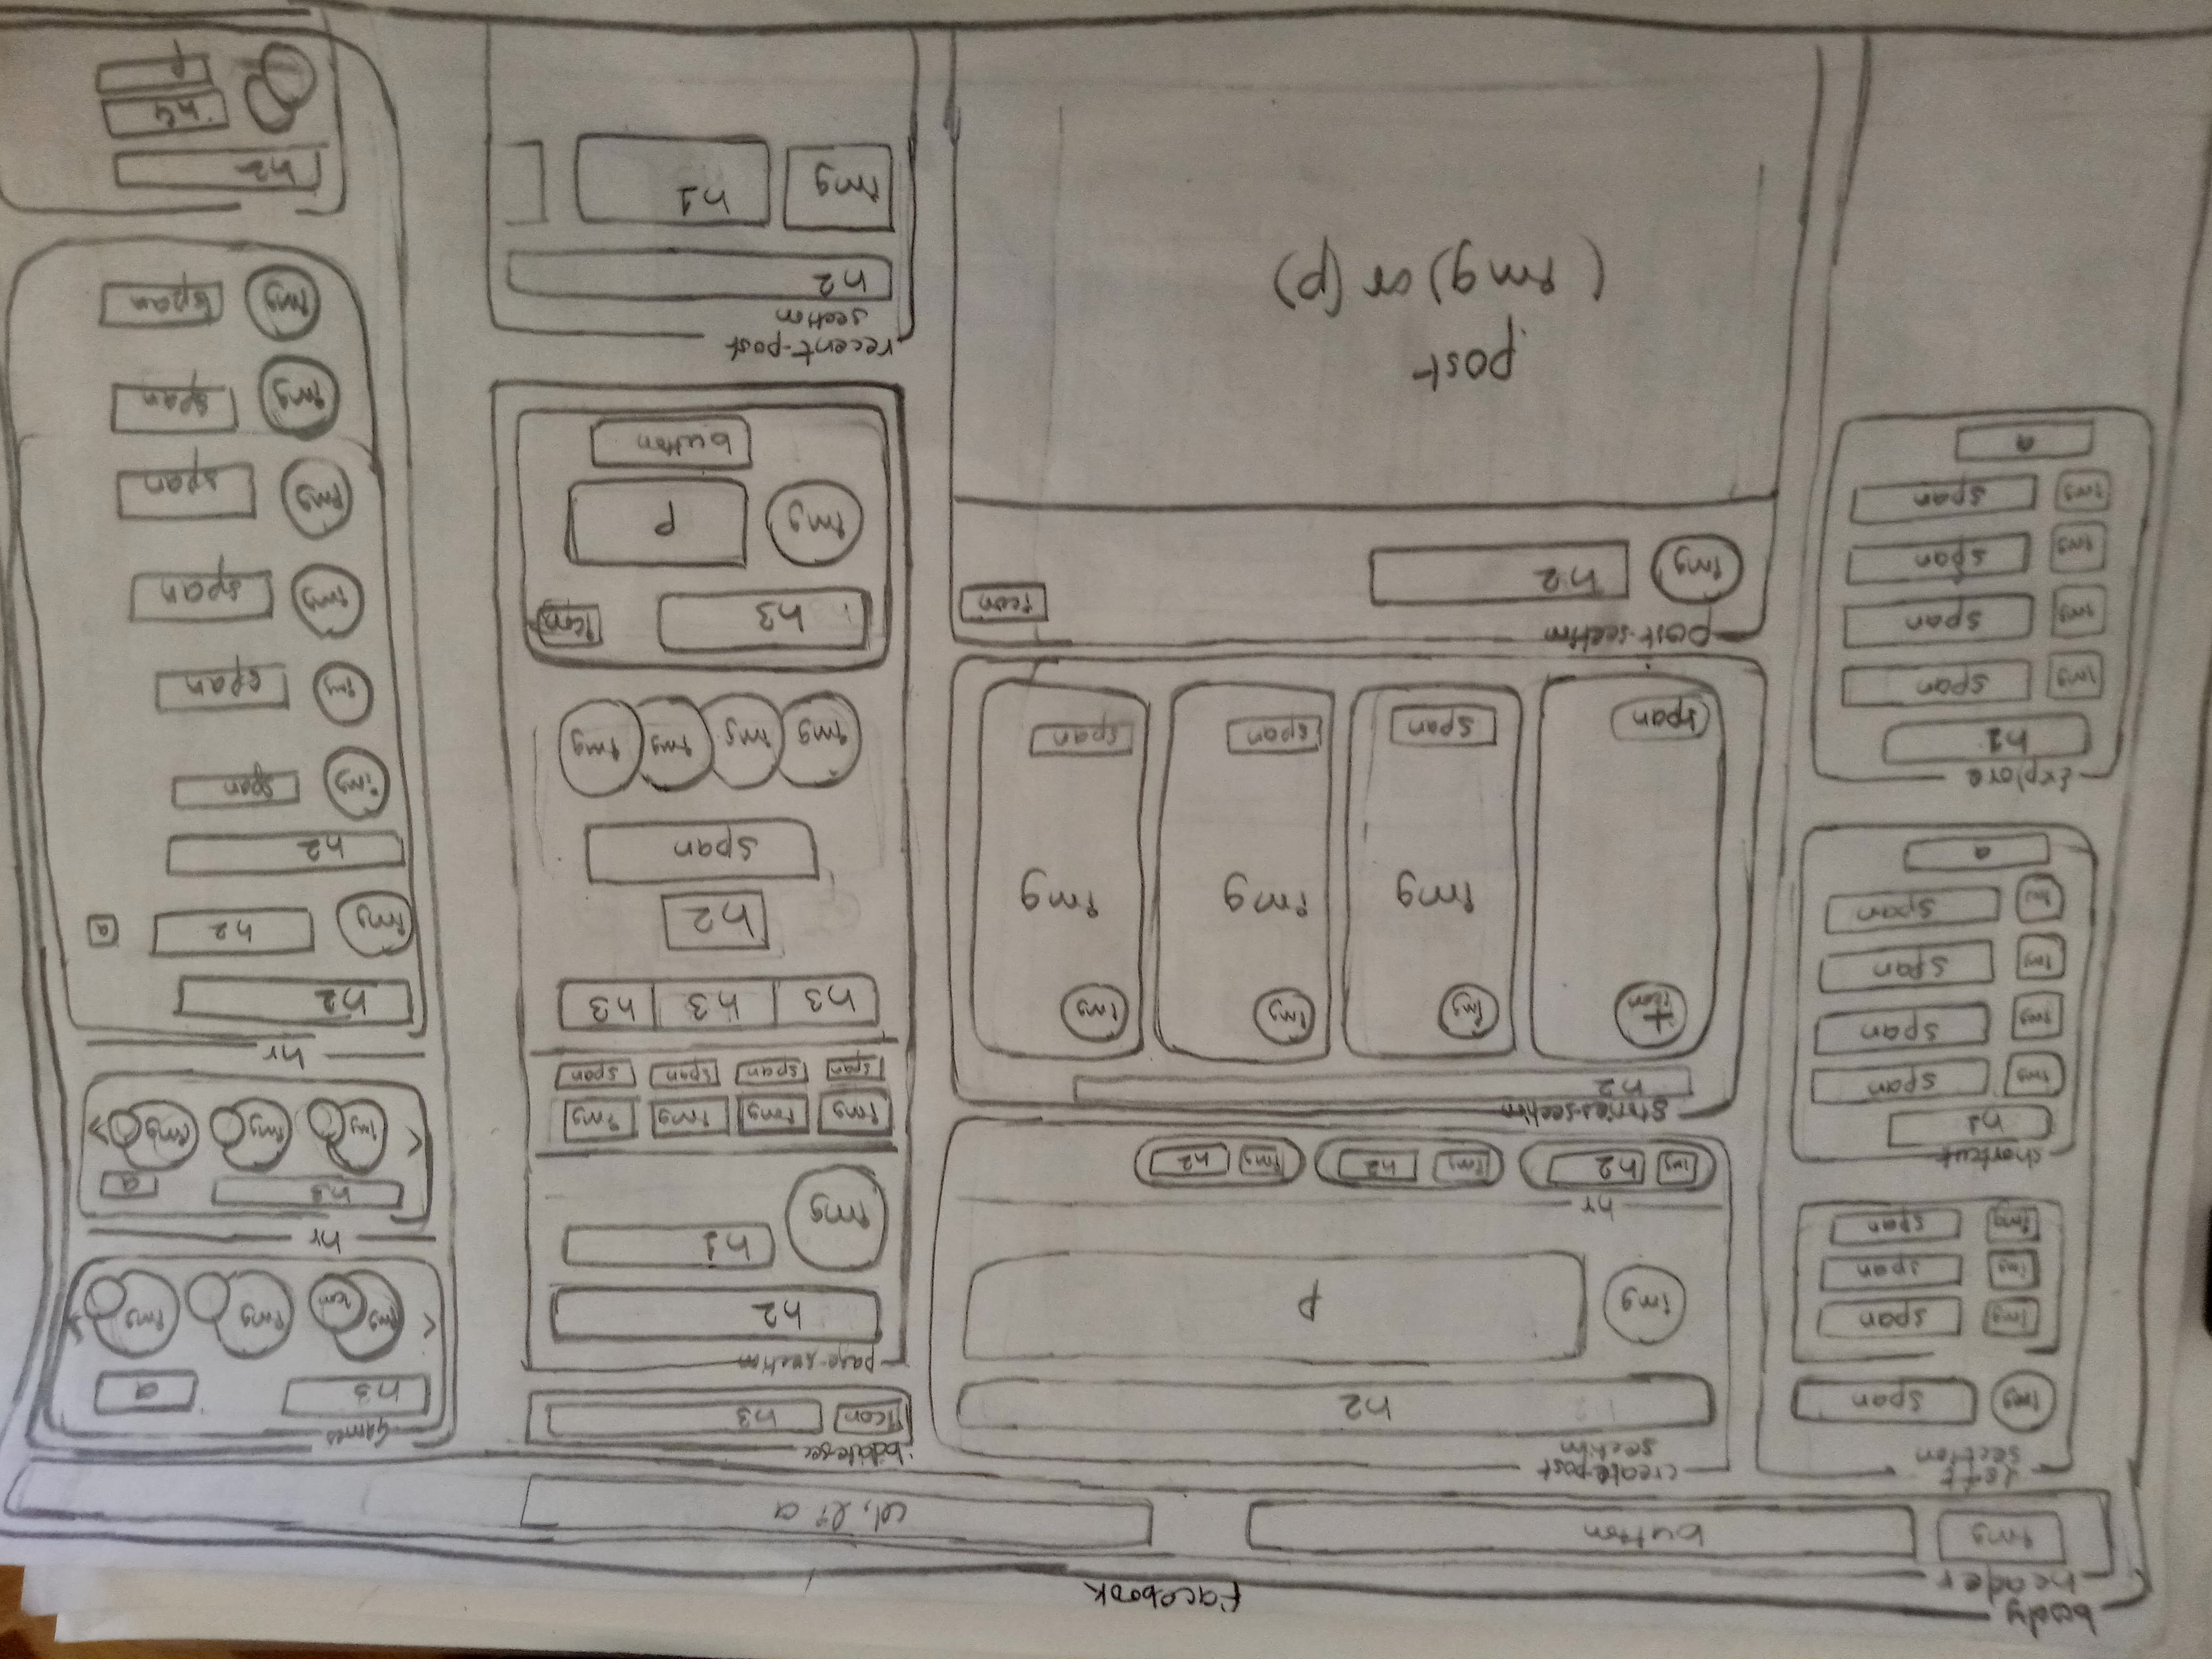 facebook
body
header
img
button
ul, li a
left
section
img
span
img
span
img
span
img
span
shortcut
h1
img
span
img
span
img
span
img
span
a
Explore
h1
img
span
img
span
img
span
img
span
a
create-post
section
h2
img
p
hr
img h2
img h2
img h2
stories-section
h2
+
icon
img
img
img
img
img
img
span
span
span
span
post-section
img
h2
icon
post
(img) or (p)
icon
h3
page-section
h2
img
h1
img img img img
span span span span
h3 h3 h3
h2
span
img img img img
h3
icon
img
p
button
recent-post
section
h2
img
h1
Games
h3
a
<
img
icon
img
img
>
hr
h3
a
<
img
img
img
>
hr
h2
img
h2
a
h2
img
span
img
span
img
span
img
span
img
span
img
span
h2
h4
p